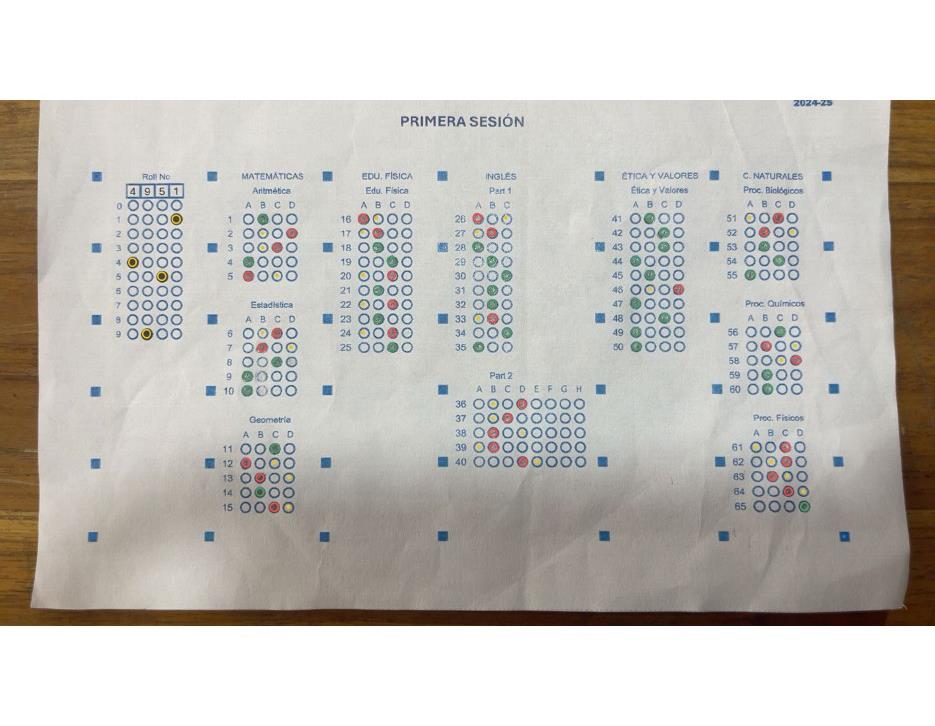 2024-25
PRIMERA SESIÓN
Roll No
4 9 5 1
0
1
2
3
4
5
6
7
8
9
MATEMÁTICAS
Aritmética
A B C D
1
2
3
4
5
Estadística
A B C D
6
7
8
9
10
Geometría
A B C D
11
12
13
14
15
EDU. FÍSICA
Edu. Física
A B C D
16
17
18
19
20
21
22
23
24
25
INGLÉS
Part 1
A B C
26
27
28
29
30
31
32
33
34
35
Part 2
A B C D E F G H
36
37
38
39
40
ÉTICA Y VALORES
Ética y Valores
A B C D
41
42
43
44
45
46
47
48
49
50
C. NATURALES
Proc. Biológicos
A B C D
51
52
53
54
55
Proc. Químicos
A B C D
56
57
58
59
60
Proc. Físicos
A B C D
61
62
63
64
65